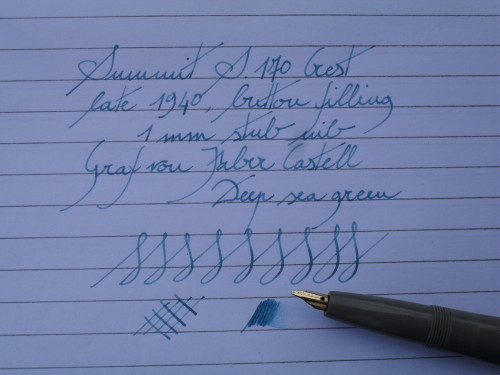 Summit S. 170 Cest
late 1940, button filling
1 mm stub nib
Graf von Faber Castell
Deep sea green